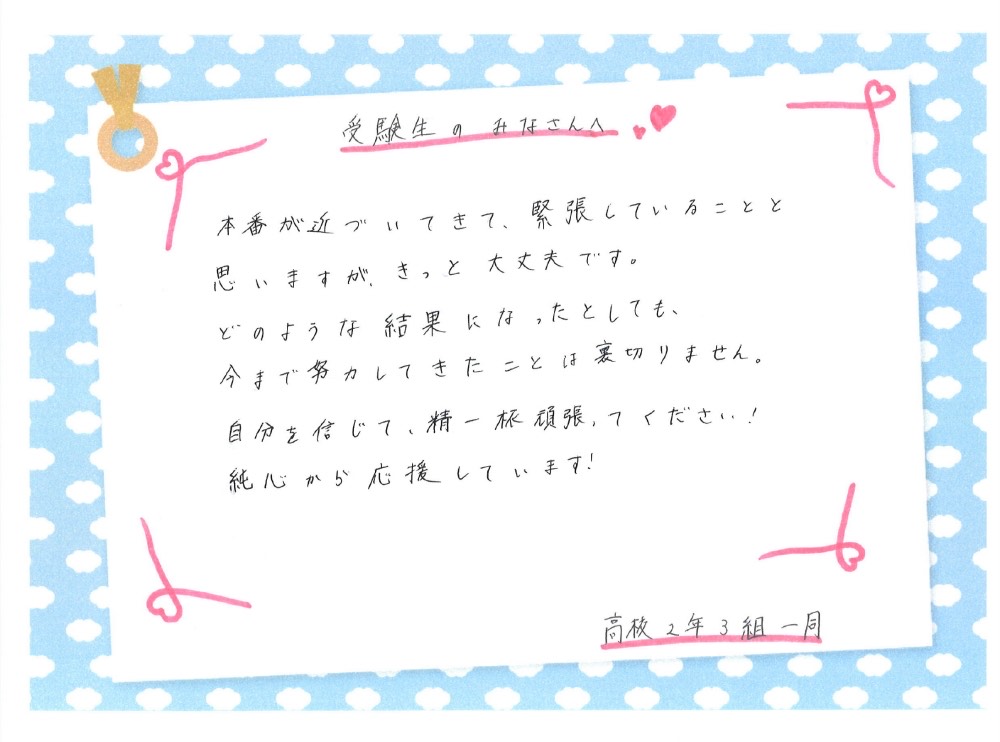 受験生のみなさんへ
本番が近づいてきて、緊張していることと
思いますが、きっと大丈夫です。
どのような結果になったとしても、
今まで努力してきたことは裏切りません。
自分を信じて、精一杯頑張ってください!
純心から応援しています!
高校2年3組一同